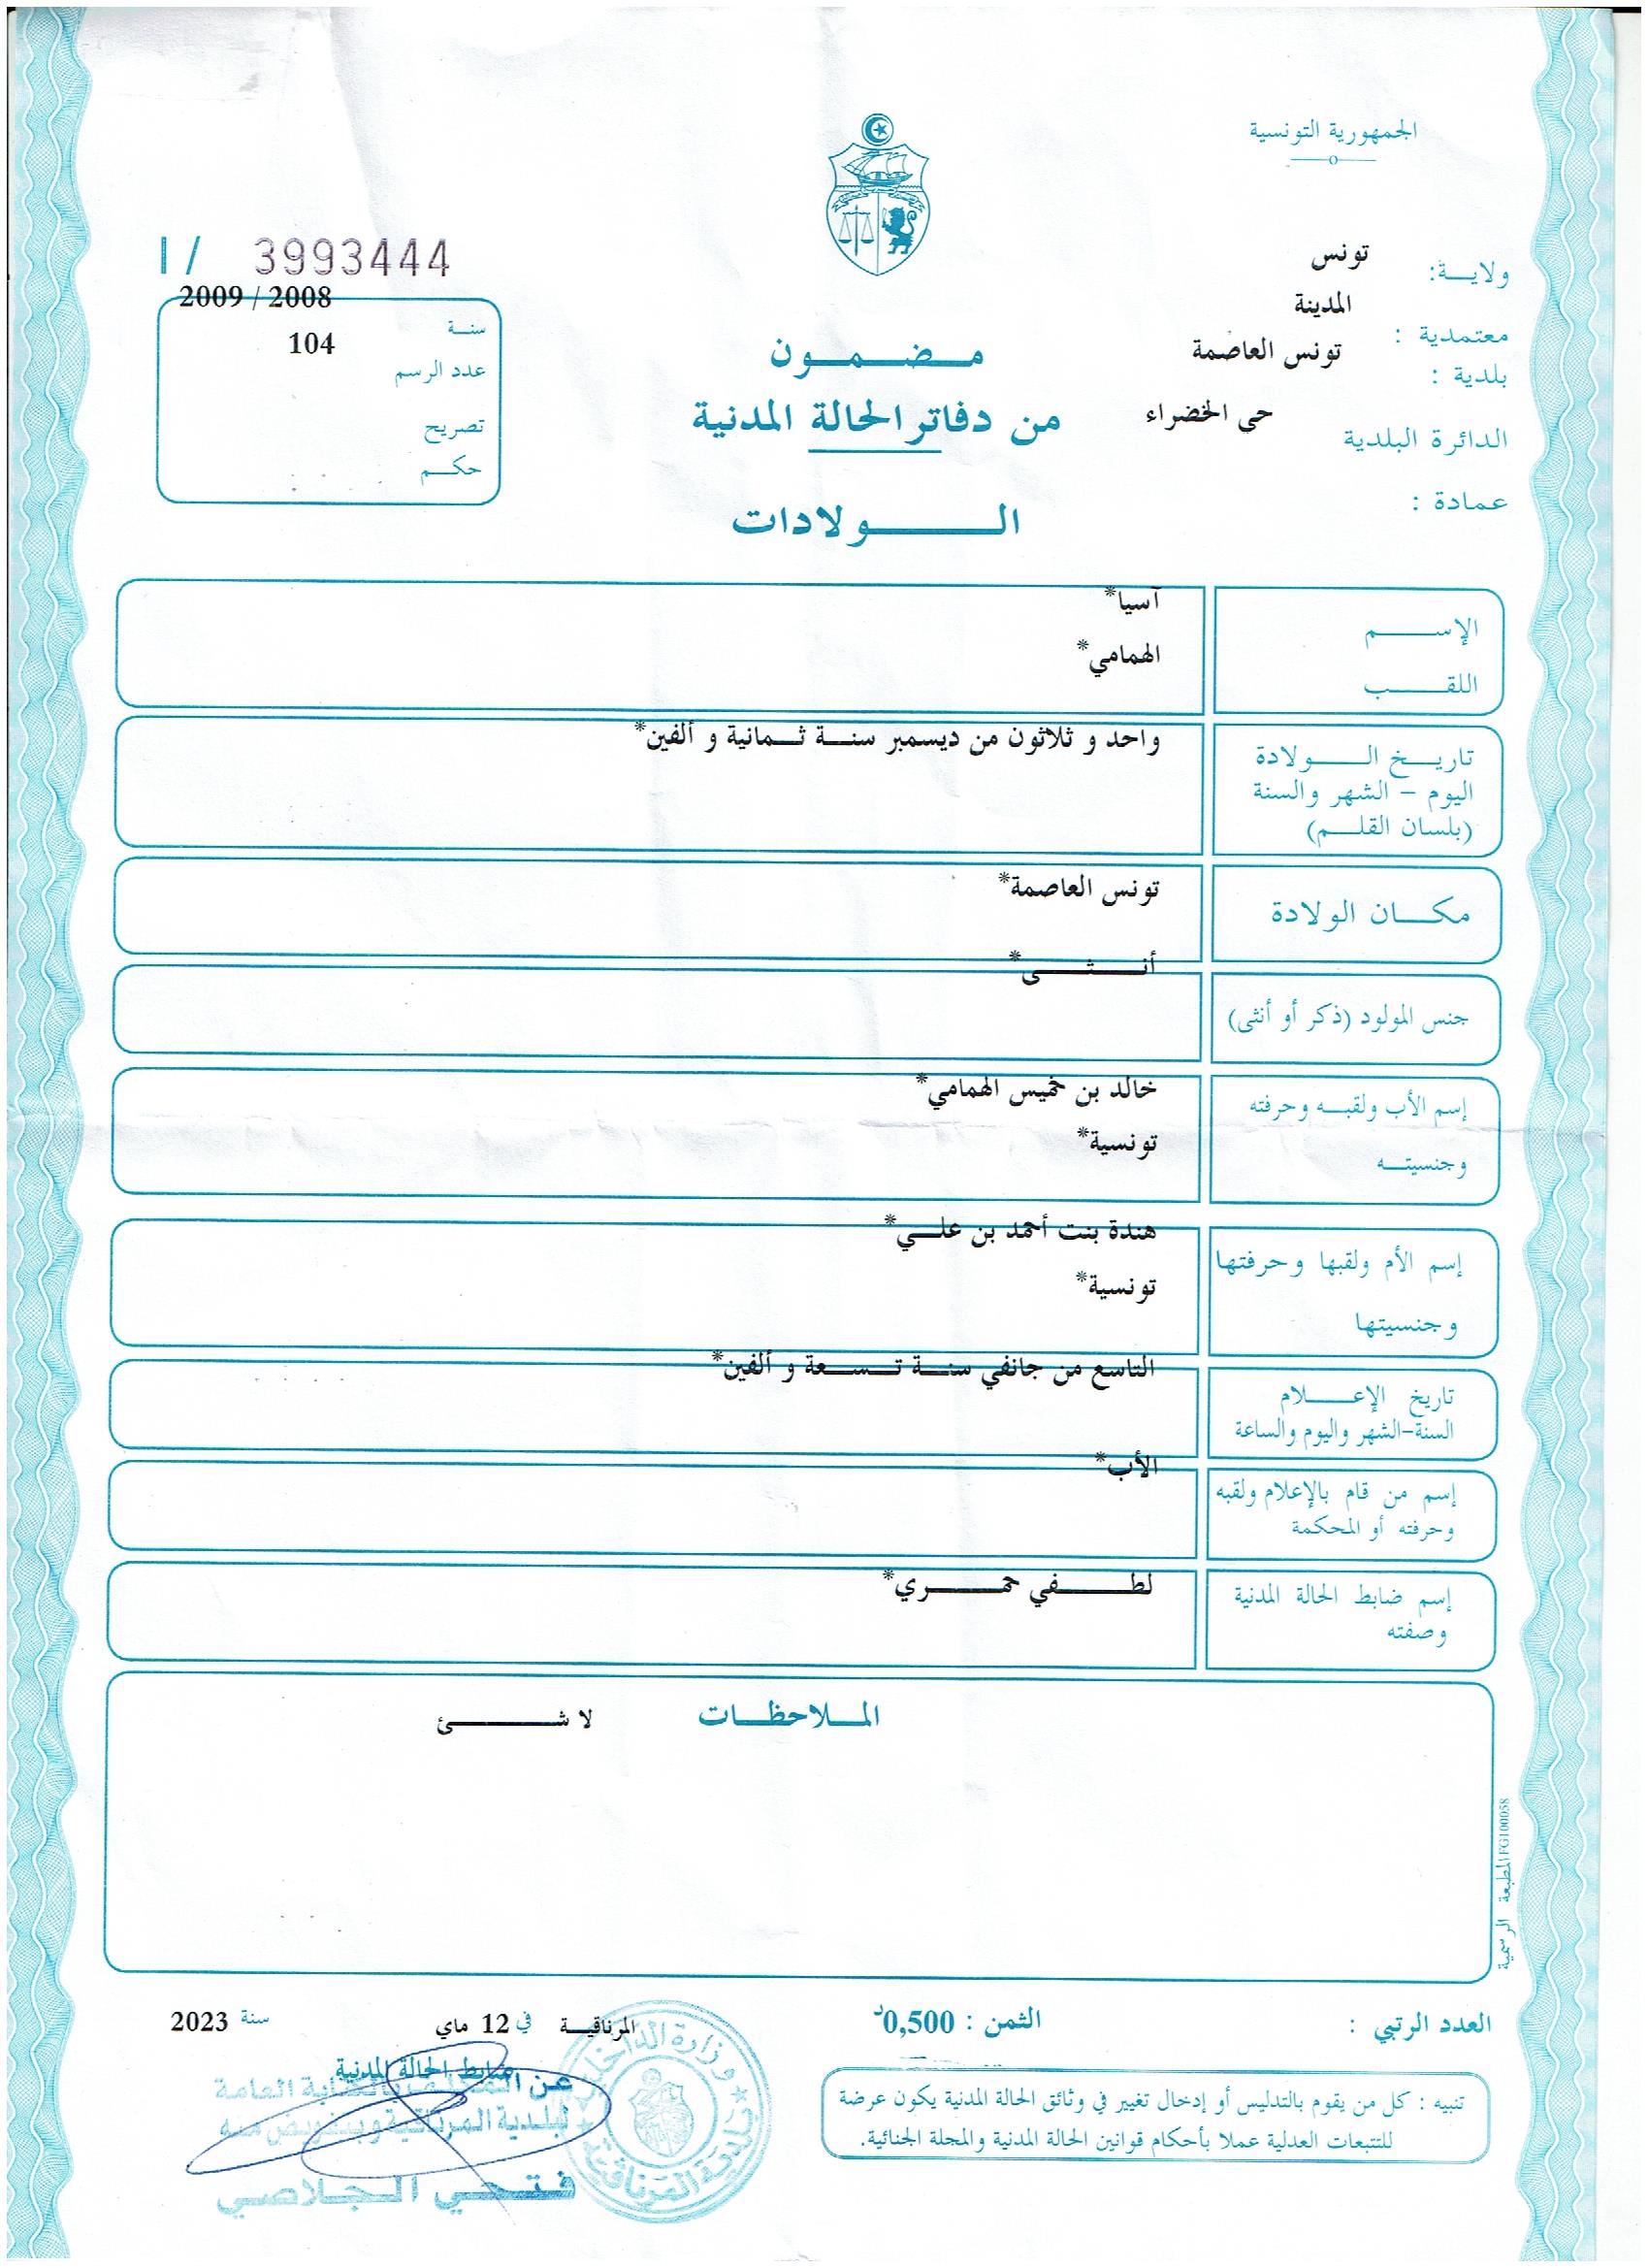 الجمهورية التونسية
ولايـــة: تونس
معتمدية : المدينة
بلدية : تونس العاصمة
الدائرة البلدية حى الخضراء
عمادة :
I / 3993444
سنــة 2009 / 2008
عدد الرسم 104
تصريح
حكــم
مـضـمـون
من دفاتر الحالة المدنية
الــولادات
الإســـم آسيا*
اللقـــب الهمامي*
تاريــخ الـــولادة واحد و ثلاثون من ديسمبر سنــة ثــمانية و ألفين*
اليوم - الشهر والسنة
(بلسان القلــم)
مكــان الولادة تونس العاصمة*
جنس المولود (ذكر أو أنثى) أنـــثـــى*
إسم الأب ولقبــه وحرفته خالد بن خميس الهمامي*
وجنسيتــه تونسية*
إسم الأم ولقبها وحرفتها هندة بنت أحمد بن علــي*
وجنسيتها تونسية*
تاريخ الإعــــلام التاسع من جانفي سنــة تــســعة و ألفين*
السنة-الشهر واليوم والساعة
إسم من قام بالإعلام ولقبه الأب*
وحرفته أو المحكمة
إسم ضابط الحالة المدنية لطـــفي حمـــري*
وصفته
المــلاحظــات لا شـــئ
المطبعة الرسمية FG100058
العدد الرتبي :
الثمن : 0,500د
المرناقيــة في 12 ماي سنة 2023
ضابط الحالة المدنية
لبلدية المرناقية وبتفويض منه
فتحي الجلاصي
وزارة الداخلية
بلدية المرناقية
تنبيه : كل من يقوم بالتدليس أو إدخال تغيير في وثائق الحالة المدنية يكون عرضة
للتتبعات العدلية عملا بأحكام قوانين الحالة المدنية والمجلة الجنائية.